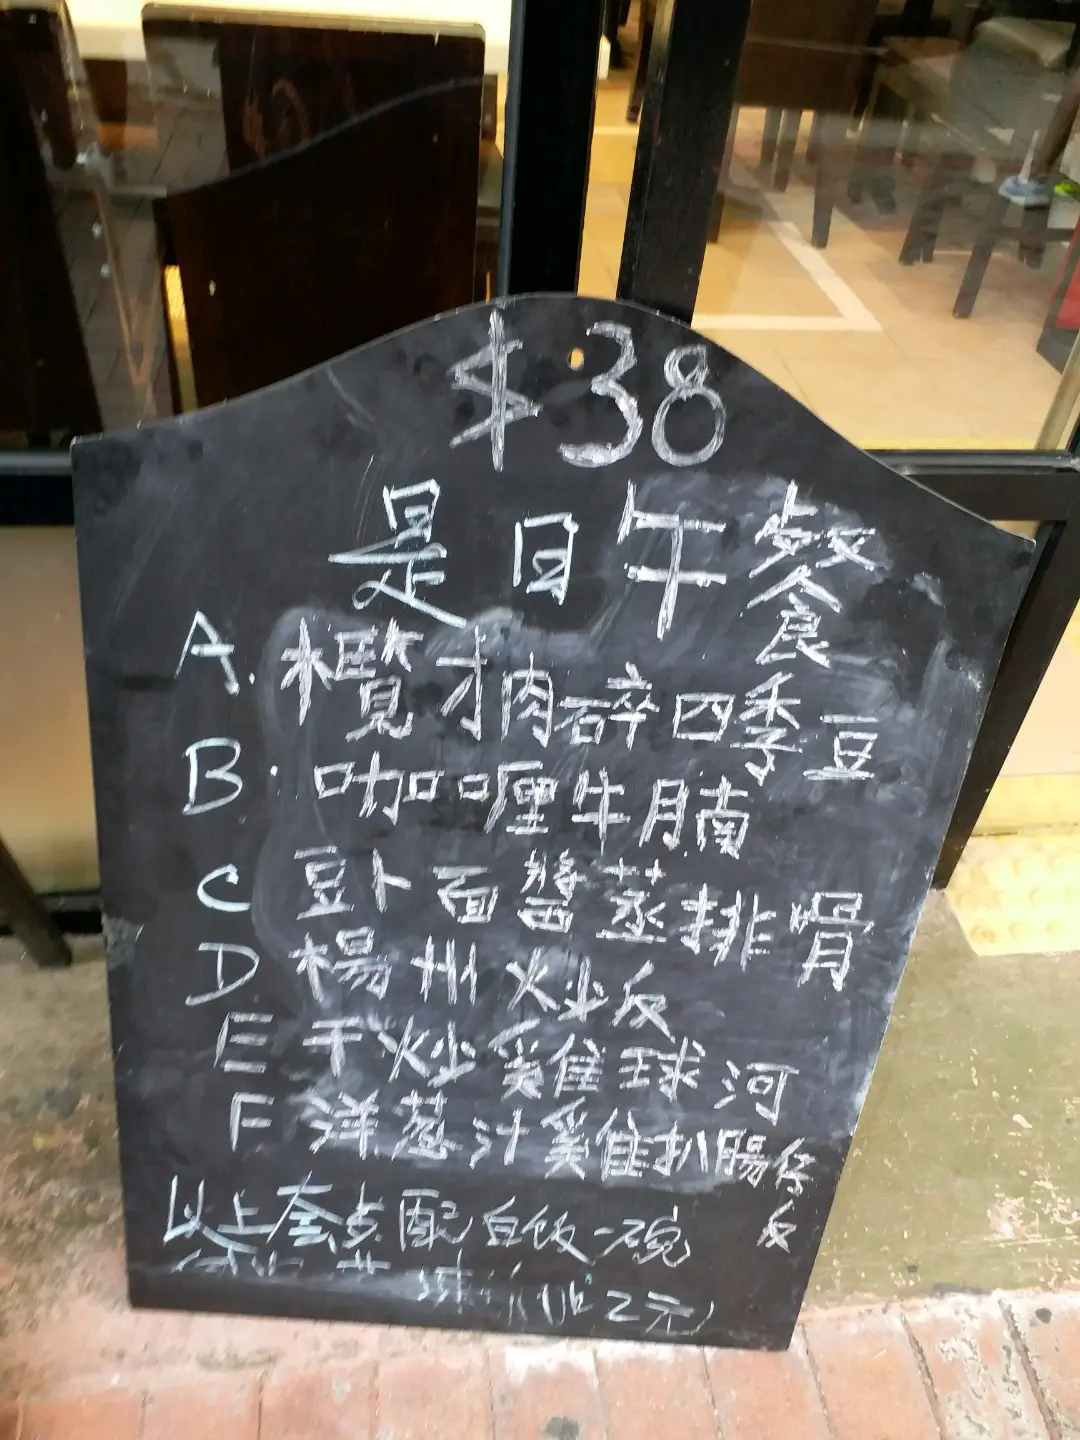 $38
是日午餐
A. 欖才肉碎四季豆
B. 咖喱牛腩
C 豆卜面醬蒸排骨
D 楊州炒反
E 干炒雞球河
F 洋葱汁雞扒腸仔反
以上套点配白飯一碗
2元)